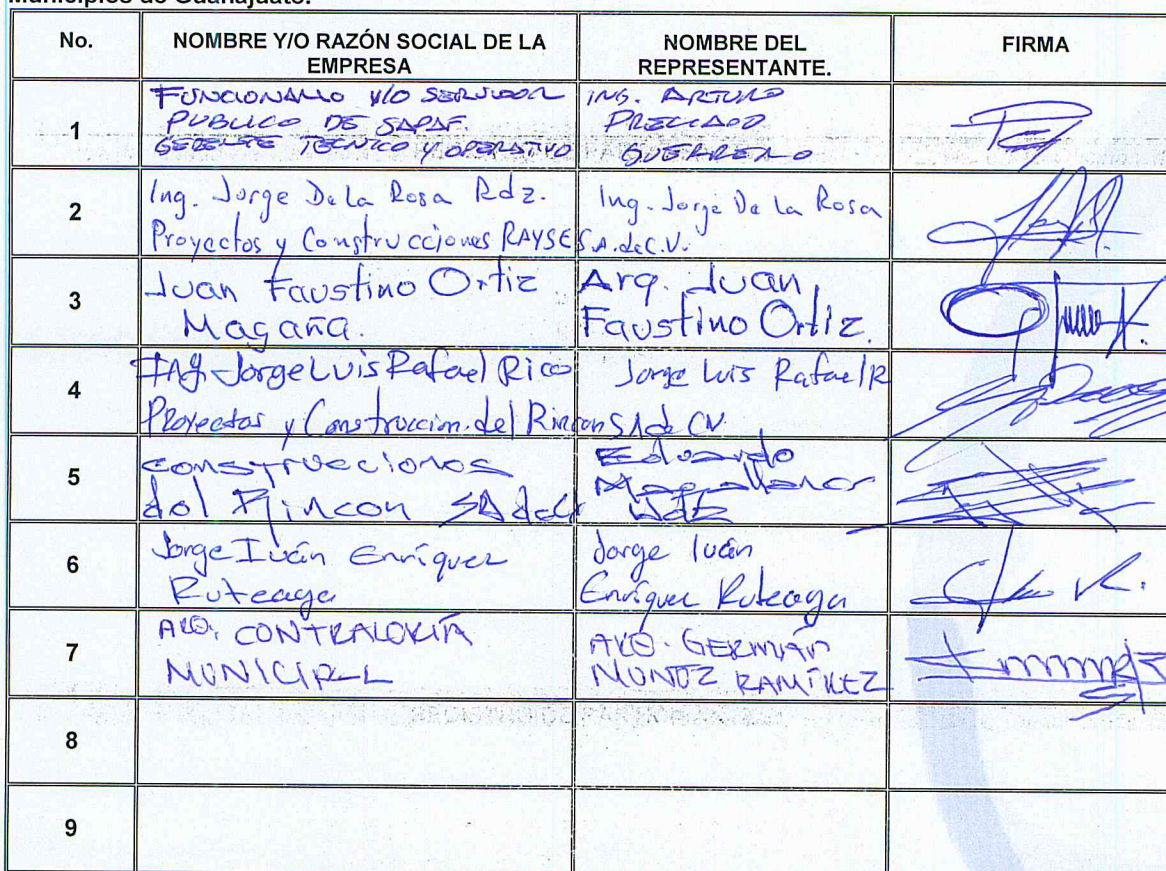 Municipios de Guanajuato.
No. NOMBRE Y/O RAZÓN SOCIAL DE LA EMPRESA NOMBRE DEL REPRESENTANTE. FIRMA
1
FUNCIONARIO Y/O SERVIDOR
PUBLICO DE SAPAF.
GERENTE TECNICO Y OPERATIVO
ING. ARTURO
PRECIADO
GUERRERO
2
Ing. Jorge De La Rosa Rdz.
Proyectos y Construcciones RAYSE S.A. de C.V.
Ing. Jorge De La Rosa
3
Juan Faustino Ortiz
Magaña.
Arq. Juan
Faustino Ortiz.
4
ING. Jorge Luis Rafael Rico
Proyectos y Construccion del Rincon SA de CV.
Jorge Luis Rafael R
5
Construcciones
del Rincon SA de CV
Eduardo
Magallanes
6
Jorge Iván Enríquez
Ruteaga
Jorge Iván
Enríquez Ruteaga
7
ARQ. CONTRALORÍA
MUNICIPAL
ARQ. GERMÁN
MUÑOZ RAMÍREZ
8
9